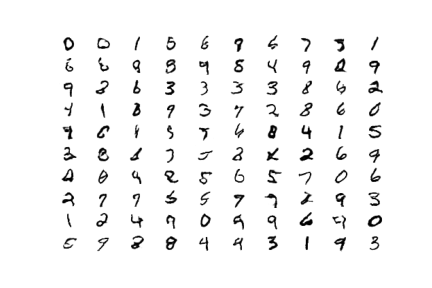 0 0 1 5 6 9 5 7 3 1
6 8 9 8 9 8 4 9 2 9
9 8 6 3 3 3 3 8 6 2
4 1 8 9 3 7 2 8 6 0
9 6 4 5 7 6 8 4 1 5
3 8 1 7 5 8 2 6 9
0 0 9 2 5 6 5 7 0 6
2 7 7 5 5 7 7 2 9 3
1 2 4 9 0 9 9 6 9 0
5 9 8 8 4 4 3 1 9 3